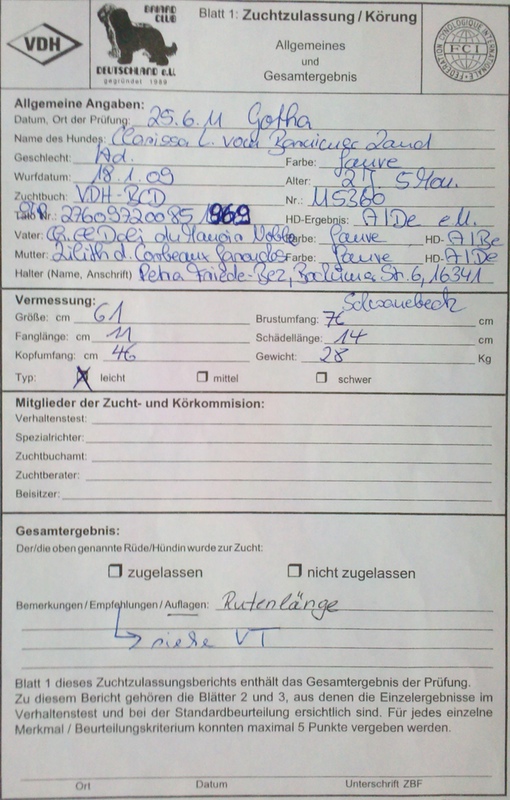 VDH
BRIARD
CLUB
DEUTSCHLAND e.V.
gegründet 1989
Blatt 1: Zuchtzulassung / Körung
Allgemeines
und
Gesamtergebnis
FEDERATION CYNOLOGIQUE INTERNATIONALE
FCI
Allgemeine Angaben:
Datum, Ort der Prüfung: 25.6.11 Gotha
Name des Hundes: Clarissa L. vom Land
Geschlecht: Hd. Farbe: fauve
Wurfdatum: 18.1.09 Alter: 2 J. 5 Mon.
Zuchtbuch: VDH-BCD Nr.: M5360
Nr.: 27609720085 1969 HD-Ergebnis: A1De e.U.
Vater: Farbe: fauve HD- A1Be
Mutter: Lilith d. Farbe: fauve HD- A1De
Halter (Name, Anschrift) Petra Friede-Bez, Bochumer Str. 6, 16341
Schwanebeck
Vermessung:
Größe: cm 61 Brustumfang: cm
Fanglänge: cm 11 Schädellänge: 14 cm
Kopfumfang: cm 46 Gewicht: 28 Kg
Typ: leicht mittel schwer
Mitglieder der Zucht- und Körkommision:
Verhaltenstest:
Spezialrichter:
Zuchtbuchamt:
Zuchtberater:
Beisitzer:
Gesamtergebnis:
Der/die oben genannte Rüde/Hündin wurde zur Zucht:
zugelassen nicht zugelassen
Bemerkungen / Empfehlungen / Auflagen: Rutenlänge
siehe VT
Blatt 1 dieses Zuchtzulassungsberichts enthält das Gesamtergebnis der Prüfung.
Zu diesem Bericht gehören die Blätter 2 und 3, aus denen die Einzelergebnisse im
Verhaltenstest und bei der Standardbeurteilung ersichtlich sind. Für jedes einzelne
Merkmal / Beurteilungskriterium konnten maximal 5 Punkte vergeben werden.
Ort Datum Unterschrift ZBF